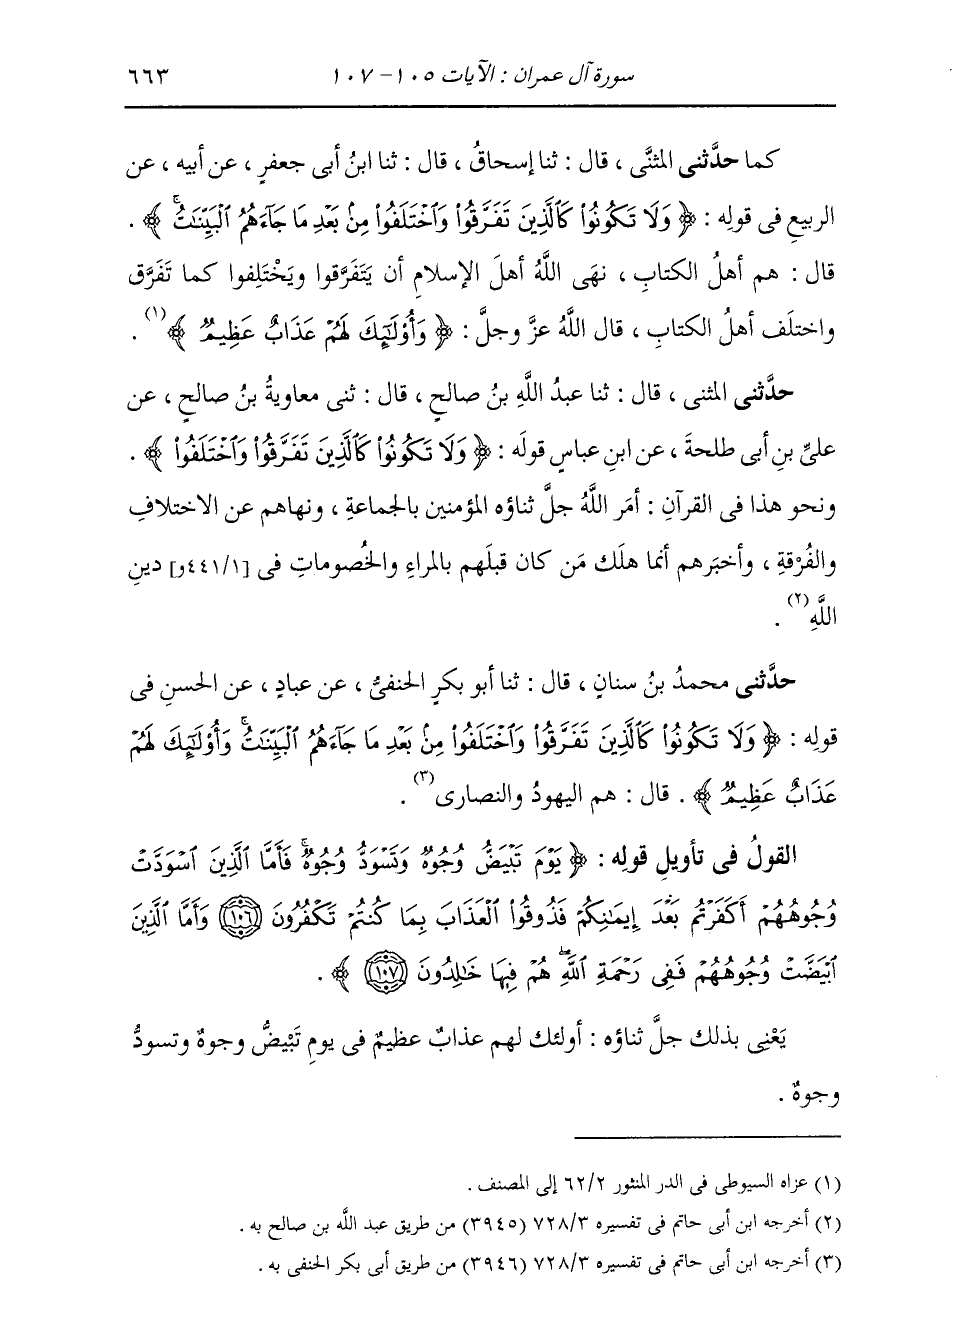 سورة آل عمران : الآيات ١٠٥ - ١٠٧ ٦٦٣
كما حدَّثنى المثنَّى ، قال : ثنا إسحاقُ ، قال : ثنا ابنُ أبى جعفرٍ ، عن أبيه ، عن
الربيعِ فى قولِه : ﴿ وَلَا تَكُونُوا۟ كَٱلَّذِينَ تَفَرَّقُوا۟ وَٱخْتَلَفُوا۟ مِنۢ بَعْدِ مَا جَآءَهُمُ ٱلْبَيِّنَـٰتُ ۚ ﴾ .
قال : هم أهلُ الكتابِ ، نهَى اللَّهُ أهلَ الإسلامِ أن يَتَفَرَّقوا ويَخْتَلِفوا كما تَفَرَّق
واختلَف أهلُ الكتابِ ، قال اللَّهُ عزَّ وجلَّ : ﴿ وَأُو۟لَـٰٓئِكَ لَهُمْ عَذَابٌ عَظِيمٌ ﴾ (١) .
حدَّثنى المثنى ، قال : ثنا عبدُ اللَّهِ بنُ صالحٍ ، قال : ثنى معاويةُ بنُ صالحٍ ، عن
علىِّ بنِ أبى طلحةَ ، عن ابنِ عباسٍ قولَه : ﴿ وَلَا تَكُونُوا۟ كَٱلَّذِينَ تَفَرَّقُوا۟ وَٱخْتَلَفُوا۟ ﴾ .
ونحو هذا فى القرآنِ : أمَر اللَّهُ جلَّ ثناؤه المؤمنين بالجماعةِ ، ونهاهم عن الاختلافِ
والفُرْقةِ ، وأخبَرهم أنما هلَك مَن كان قبلَهم بالمراءِ والخُصوماتِ فى [١/٤٤١و] دينِ
اللَّهِ (٢) .
حدَّثنى محمدُ بنُ سنانٍ ، قال : ثنا أبو بكرٍ الحنفىُّ ، عن عبادٍ ، عن الحسنِ فى
قولِه : ﴿ وَلَا تَكُونُوا۟ كَٱلَّذِينَ تَفَرَّقُوا۟ وَٱخْتَلَفُوا۟ مِنۢ بَعْدِ مَا جَآءَهُمُ ٱلْبَيِّنَـٰتُ ۚ وَأُو۟لَـٰٓئِكَ لَهُمْ
عَذَابٌ عَظِيمٌ ﴾ . قال : هم اليهودُ والنصارى (٣) .
القولُ فى تأويلِ قولِه : ﴿ يَوْمَ تَبْيَضُّ وُجُوهٌ وَتَسْوَدُّ وُجُوهٌ ۚ فَأَمَّا ٱلَّذِينَ ٱسْوَدَّتْ
وُجُوهُهُمْ أَكَفَرْتُم بَعْدَ إِيمَـٰنِكُمْ فَذُوقُوا۟ ٱلْعَذَابَ بِمَا كُنتُمْ تَكْفُرُونَ ١٠٦ وَأَمَّا ٱلَّذِينَ
ٱبْيَضَّتْ وُجُوهُهُمْ فَفِى رَحْمَةِ ٱللَّهِ ۖ هُمْ فِيهَا خَـٰلِدُونَ ١٠٧ ﴾ .
يَعْنِى بذلك جلَّ ثناؤه : أولئك لهم عذابٌ عظيمٌ فى يومِ تَبْيَضُّ وجوهٌ وتسودُّ
وجوهٌ .
(١) عزاه السيوطى فى الدر المنثور ٦٢/٢ إلى المصنف .
(٢) أخرجه ابن أبى حاتم فى تفسيره ٧٢٨/٣ (٣٩٤٥) من طريق عبد اللَّه بن صالح به .
(٣) أخرجه ابن أبى حاتم فى تفسيره ٧٢٨/٣ (٣٩٤٦) من طريق أبى بكر الحنفى به .